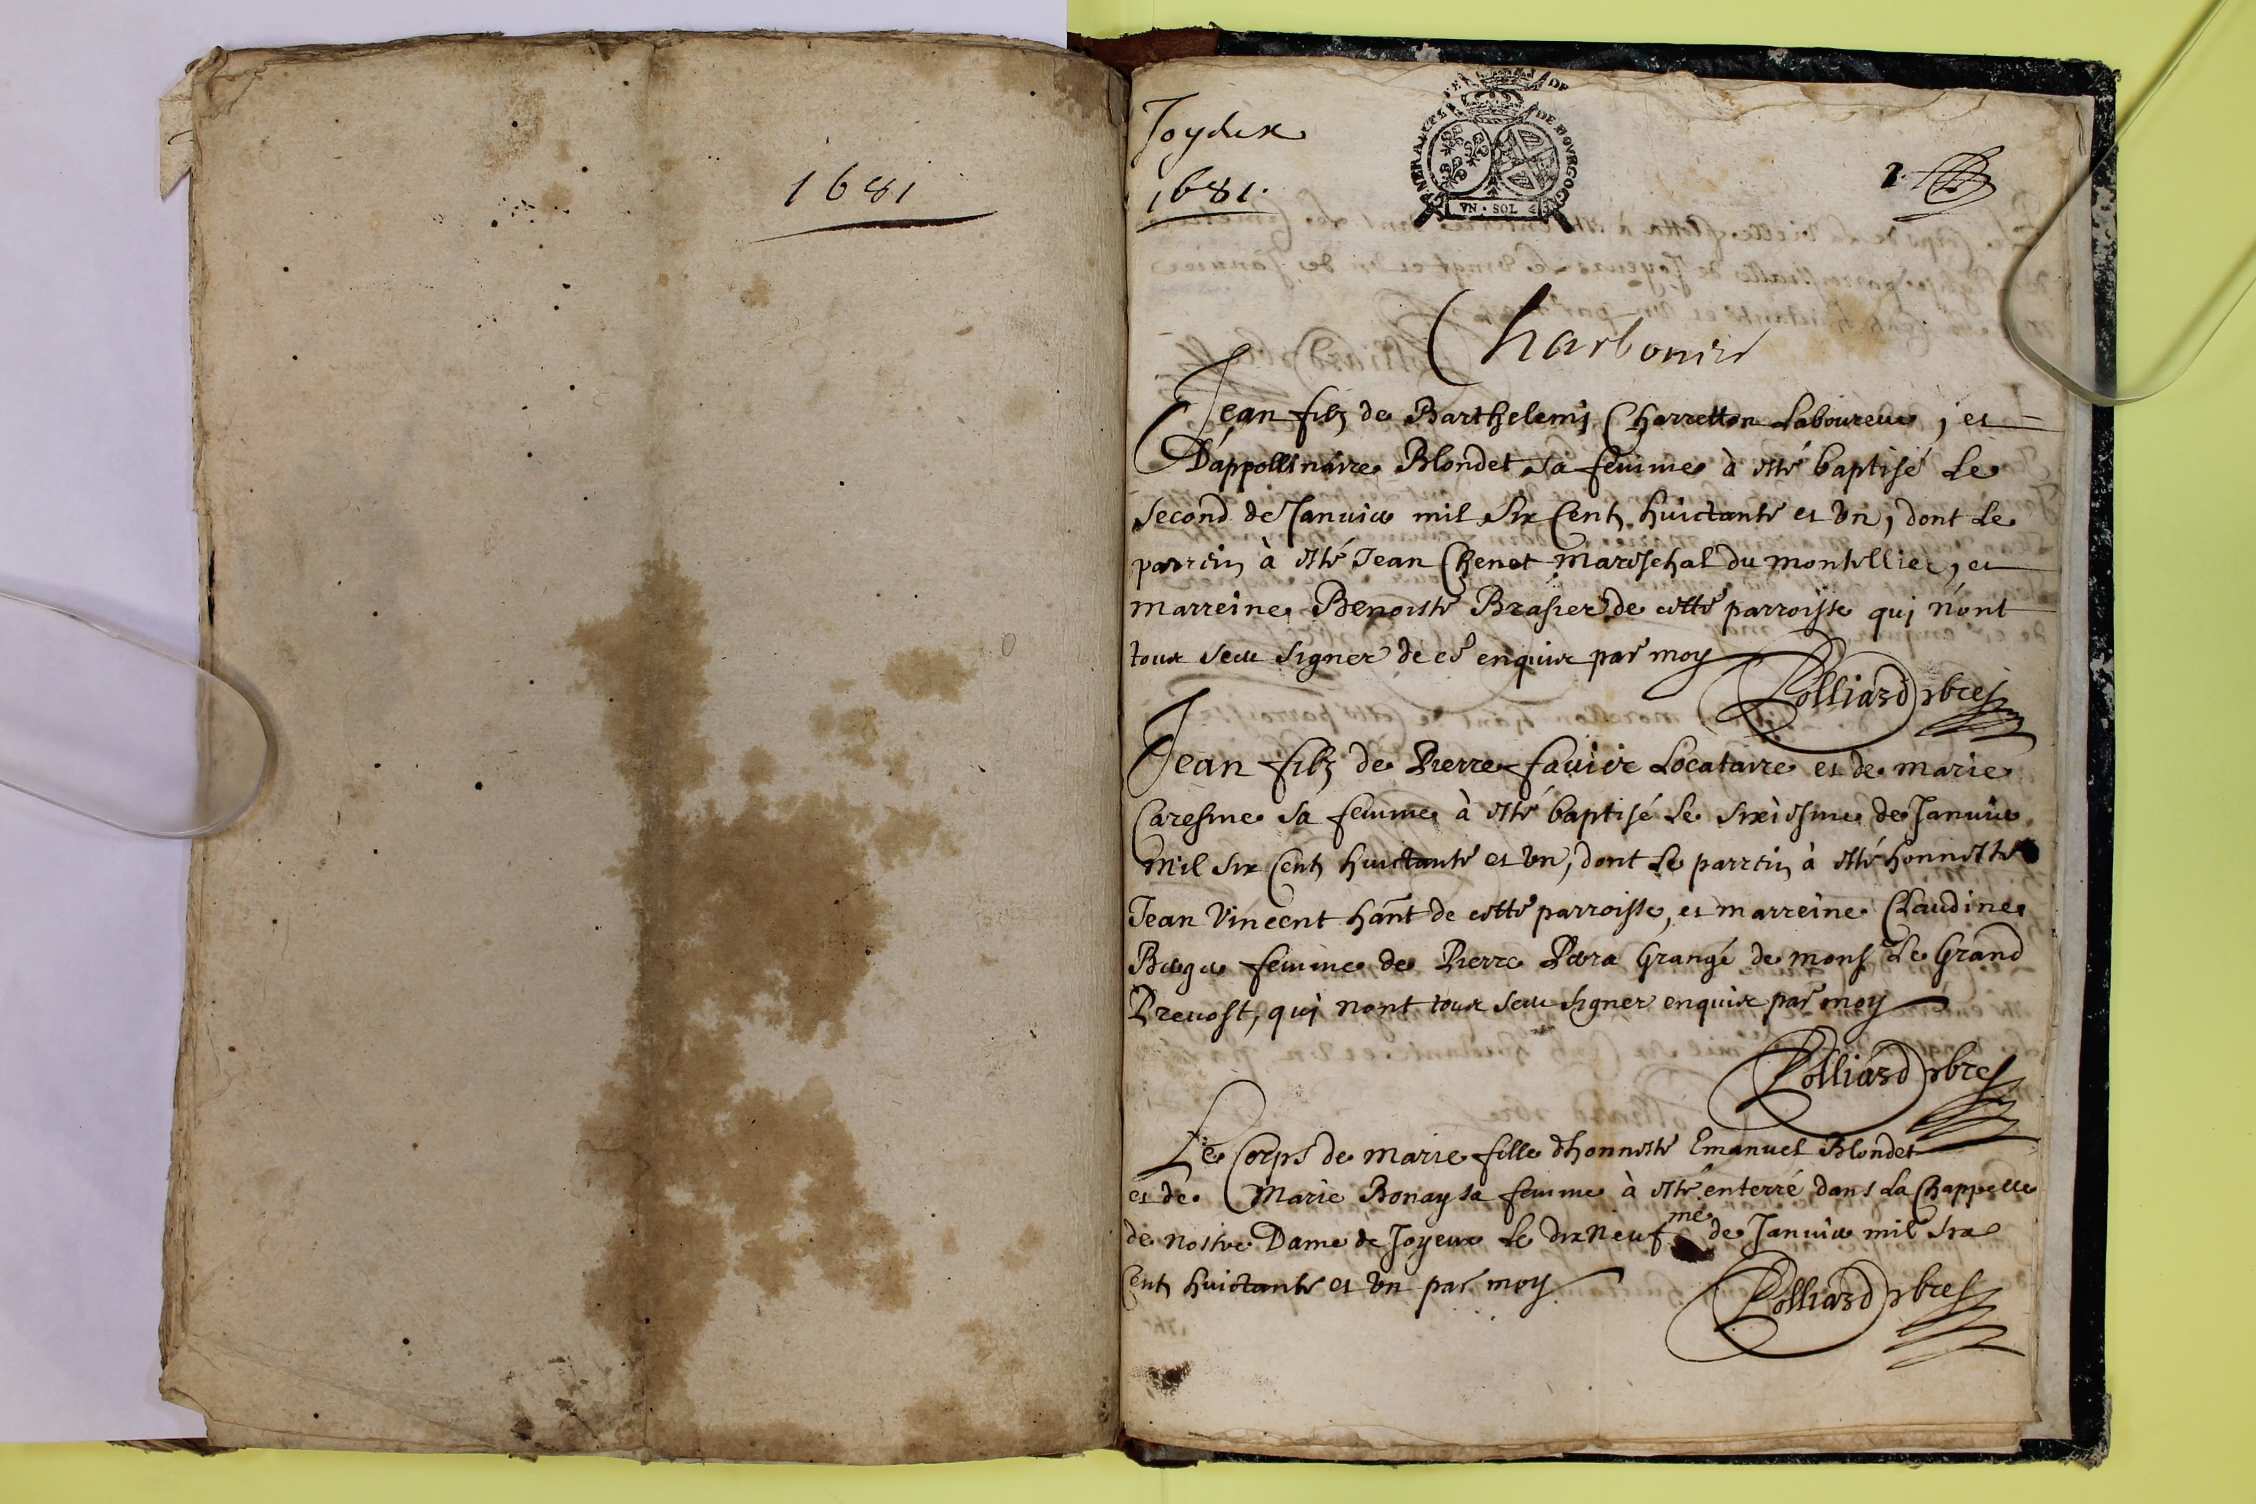 1681
Joyeux
1681.
GENERALITE DE BOURGOGNE
VN · SOL
1
Charbonier
Jean filz de Barthelemy Charretton Laboureur, et
D'appollinaire Blondet sa femme à esté baptisé Le
second de Janvier mil six Centz huictante et Vn, dont Le
parrein à esté Jean Chenet mareschal du montellier, et
marreine Benoiste Brasier de cette parroisse qui n'ont
tous sceu signer de ce enquis par moy
Polliard pbre
Jean filz de Pierre favier Locataire et de marie
Caresme sa femme à esté baptisé Le sixiesme de Janvier
mil six Centz huictante et Vn, dont Le parrein à esté honneste
Jean Vincent hãnt de cette parroisse, et marreine Claudine
femme de Pierre Grangé de mons.r Le Grand
Prevost, qui n'ont tous sceu signer enquis par moy
Polliard pbre
Le Corps de marie fille d'honneste Emanuel Blondet
et de Marie Bonay sa femme à esté enterré dans La Chappelle
de nostre Dame de Joyeux Le dixneufme de Janvier mil six
Centz huictante et Vn par moy
Polliard pbre